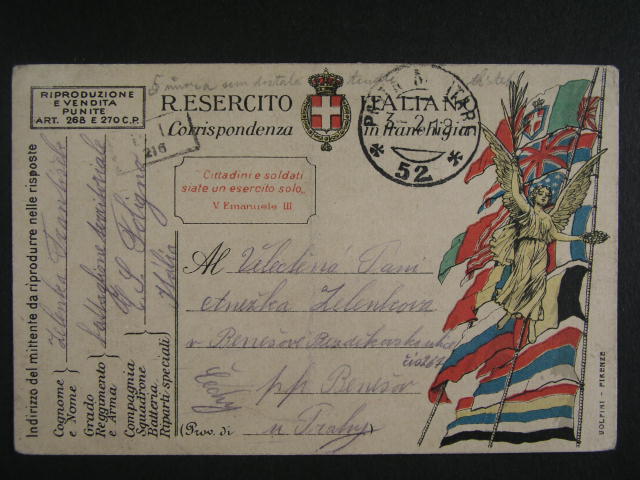 RIPRODUZIONE
E VENDITA
PUNITE
ART. 268 E 270 C.P.
R. ESERCITO ITALIANO
Corrispondenza in franchigia
POSTA MILITARE
52
216
Cittadini e soldati
siate un esercito solo..
V. Emanuele III
Al Velectěná Paní
Anežka Zelenkova
v Benešově
čís 267
pp Benešov
Čechy
u Prahy
(Prov. di )
Indirizzo del mittente da riprodurre nelle risposte
Cognome
e Nome
Zelenka František
Grado
Reggimento
e Arma
battaglione territoriale
Compagnia
Squadrone
Batteria
Riparti speciali
Foligno
Italie
DOLFINI - FIRENZE